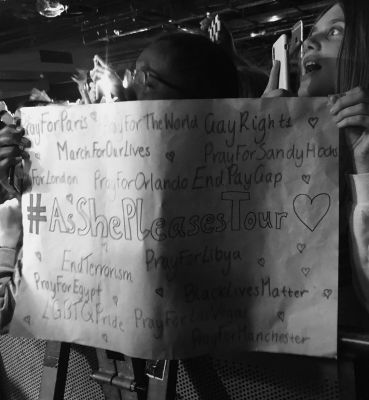 PrayForParis PrayForTheWorld GayRights
MarchForOurLives PrayForSandyHook
PrayForLondon PrayForOrlando EndPayGap
#AsShePleasesTour
EndTerrorism PrayForLibya
PrayForEgypt BlackLivesMatter
LGBTQPride PrayForLasVegas
PrayForManchester